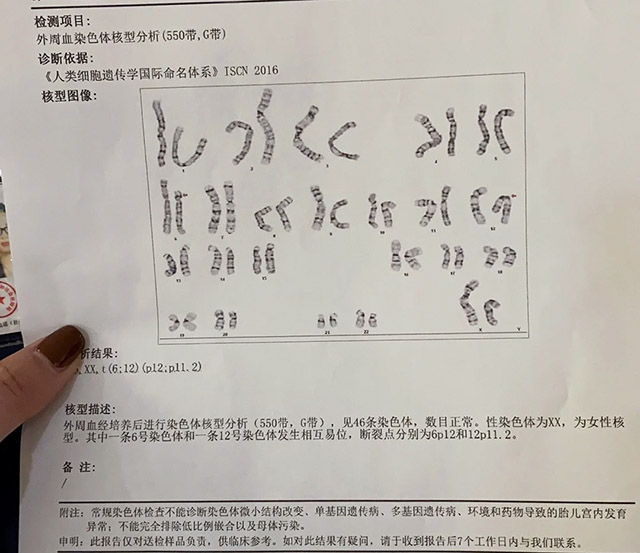 检测项目:
外周血染色体核型分析(550带,G带)
诊断依据:
《人类细胞遗传学国际命名体系》ISCN 2016
核型图像:
1 2 3 4 5
6 7 8 9 10 11 12
13 14 15 16 17 18
19 20 21 22 X Y
析结果:
,XX,t(6;12)(p12;p11.2)
核型描述:
外周血经培养后进行染色体核型分析（550带，G带），见46条染色体，数目正常。性染色体为XX，为女性核
型。其中一条6号染色体和一条12号染色体发生相互易位，断裂点分别为6p12和12p11.2。
备 注:
/
附注：常规染色体检查不能诊断染色体微小结构改变、单基因遗传病、多基因遗传病、环境和药物导致的胎儿宫内发育
异常；不能完全排除低比例嵌合以及母体污染。
申明：此报告仅对送检样品负责，供临床参考。如对此结果有疑问，请于收到报告后7个工作日内与我们联系。